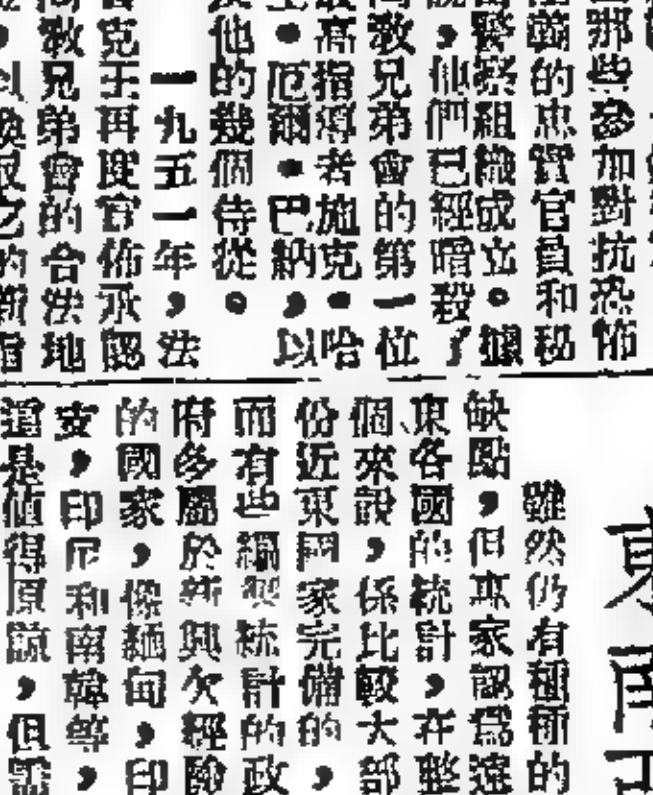 那些參加對抗恐怖
的忠實官員和秘
警察組織成立。據
,他們已經暗殺了
敎兄弟會的第一位
高指導者施克•哈
•厄爾•巴納,以
他的幾個侍從。
一九五一年,法
克王再度宣佈承認
敎兄弟會的合法地
東南
雖然仍有種種的
缺點,但專家認爲遠
東各國的統計,在整
個來說,係比較大部
份近東國家完備的,
而有些編製統計的政
府多屬於新興欠經驗
的國家,像緬甸,印
支,印尼和南韓等,
這是值得原諒,但需